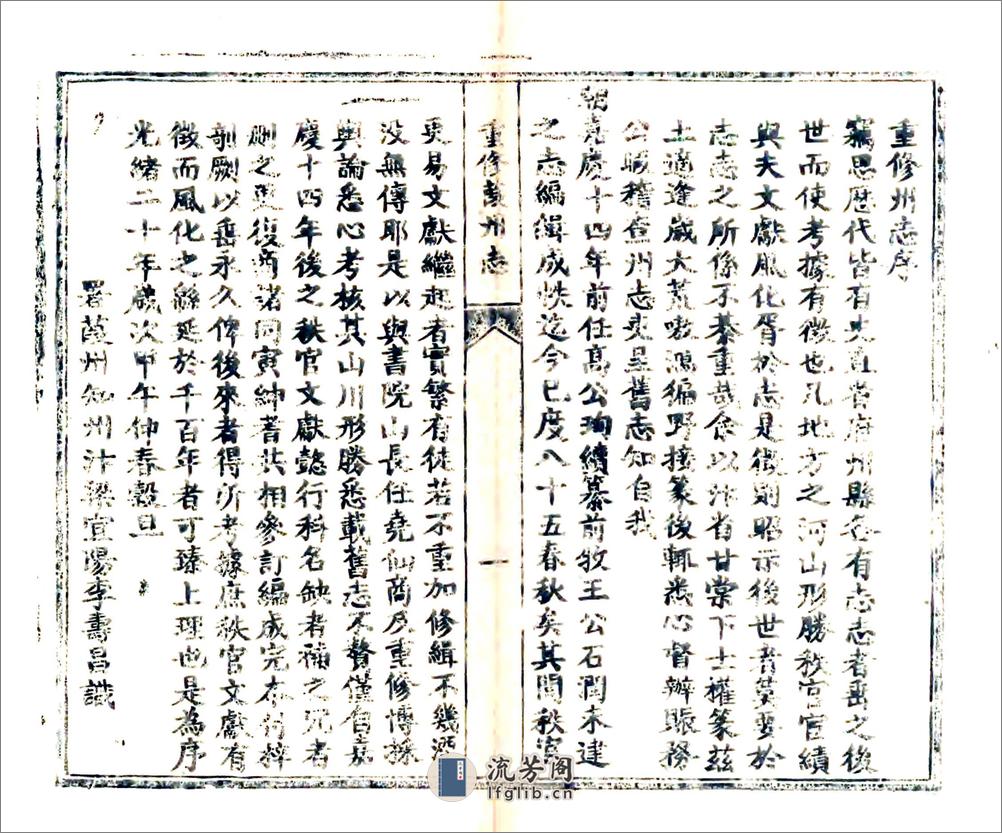 重修州志序
竊思歷代皆有史直省府州縣各有志志者垂之後
世而使考據有徵也凡地方之河山形勝秩官官績
與夫文獻風化胥於志是徵則昭示後世者莫要於
志志之所係不綦重哉余以汴省甘棠下士權篆茲
土適逢歲大荒嗷鴻徧野接篆後輒悉心督辦賑務
公暇稽查州志吏呈舊志知自我
朝嘉慶十四年前任高公珣續纂前牧王公石潤未逮
之志編緝成帙迄今已度八十五春秋矣其間秩官
重修葭州志
一
更易文獻繼起者實繁有徒若不重加修緝不幾湮
沒無傳耶是以與書院山長任堯仙商及重修博採
輿論悉心考核其山川形勝悉載舊志不贅僅自嘉
慶十四年後之秩官文獻懿行科名缺者補之冗者
刪之更復商諸同寅紳耆共相參訂編成完本付梓
剞劂以垂永久俾後來者得所考據庶秩官文獻有
徵而風化之緜延於千百年者可臻上理也是為序
光緒二十年歲次甲午仲春穀旦
署葭州知州汴梁宜陽李壽昌識
流芳閣
lfglib.cn